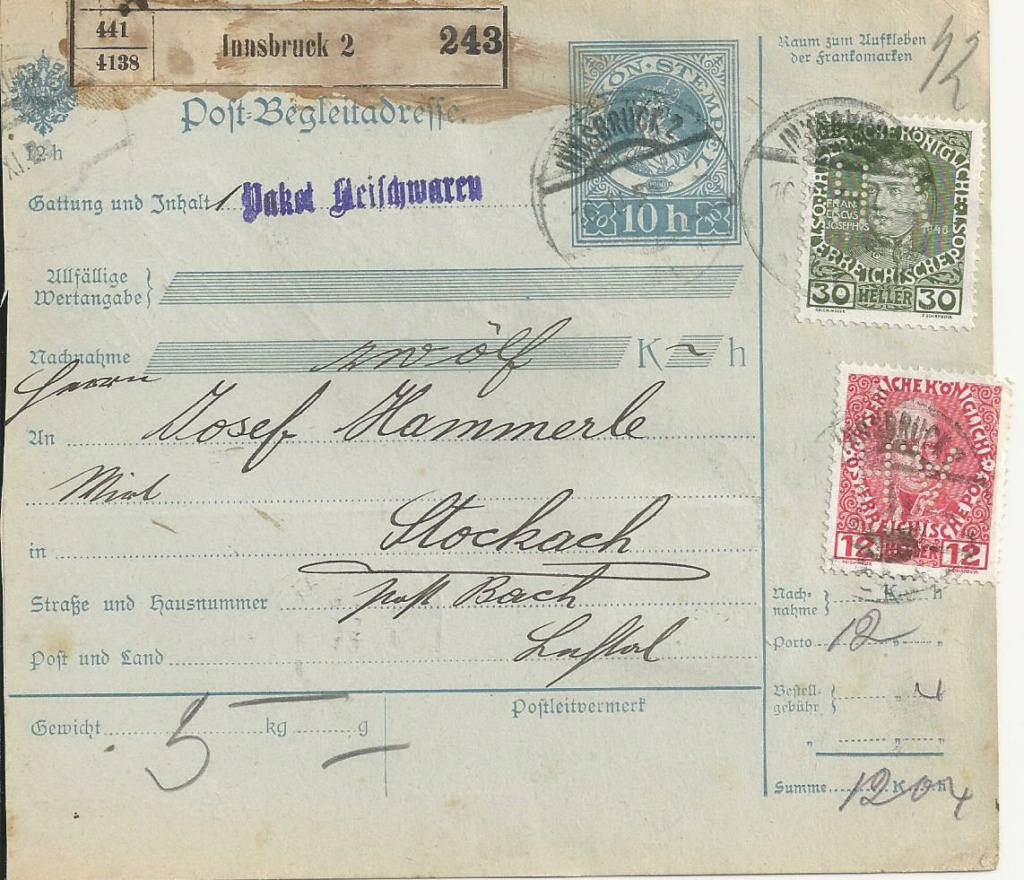 441
4138
Innsbruck 2
243
Raum zum Aufkleben
der Frankomarken
12
Post-Begleitadresse.
12 h
STEMPEL
INNSBRUCK 2
10 h
INNSBRUCK
KÖNIGLICHE
ÖSTERREICHISCHE POST
FRAN
CISCVS
JOSEPHVS
1848
30 HELLER 30
Gattung und Inhalt 1 Paket Fleischwaren
Allfällige
Wertangabe
Nachnahme zwölf K ~ h
Herrn
An Josef Hammerle
INNSBRUCK 2
KÖNIGLICHE
12 HELLER 12
in Stockach
Straße und Hausnummer post Bach
Post und Land
Nach-
nahme K h
Porto 12 " "
Bestell-
gebühr " 4
" " "
Summe 12 K 04 h
Gewicht 5 kg – g
Postleitvermerk